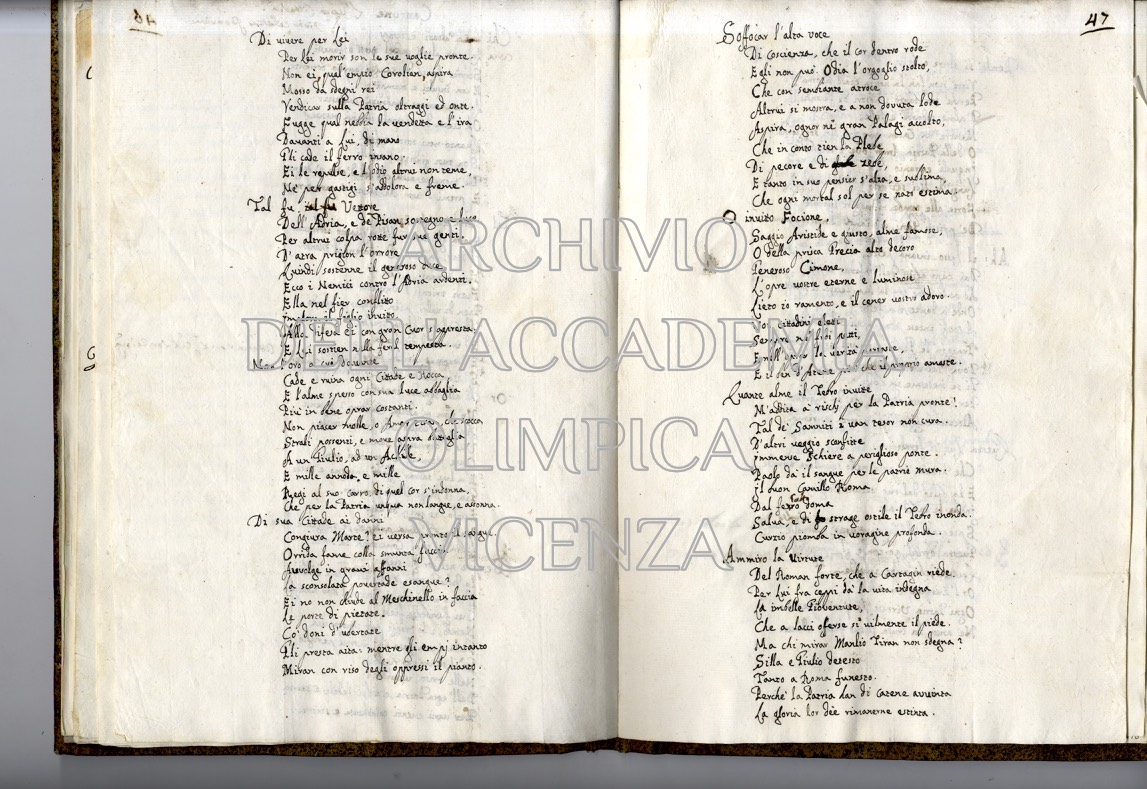 46
Di vivere per Lei
Per Lei morir son le sue voglie pronte.
Non ei, qual'empio Coriolan, aspira
Mosso da sdegni rei
Vendicar sulla Patria oltraggi ed onte.
Fugge qual nebbia la vendetta e l'ira
Davanti a Lui, di mano
Gli cade il ferro invano.
Ei le repulse, e l'odio altrui non teme,
Nè per gastigi s'addolora e freme.
Tal fu Vettore
Dell'Adria, e de' Pisan sostegno e luce
Per altrui colpa rotte fur sue genti.
D'atra prigion l'orrore
Quindi sostenne il generoso duce
Ecco i Nemici contro l'Adria ardenti.
Ella nel fier conflitto
Implora il figlio invitto.
Alla difesa ei con gran Cuor s'appresta
E Lei sostien nella feral tempesta.
Non l'oro a cui
Cade e ruina ogni Cittade e Rocca
E l'alme spesso con sua luce abbaglia
Più in bene oprar costanti.
Non piacer molle, o Amor che scocca
Strali possenti, e move aspra battaglia
A un Giulio, ad un Achille,
E mille annoda, e mille
Regi al suo carro, di quel cor s'indonna,
Che per la Patria unqua non langue, e assonna.
Di sua Cittade ai danni
Congiura Marte? ei versa pronto il sangue.
Orrida fame colla smunta faccia
Avvolge in gravi affanni
La sconsolata povertade esangue?
Ei no non chiude al Meschinello in faccia
Le porte di pietate.
Co' doni d'ubertate
Gli presta aita: mentre gli empj intanto
Miran con riso degli oppressi il pianto.
47
Soffocar l'alta voce
Di Coscienza, che il cor dentro rode
Egli non può. Odia l'orgoglio stolto,
Che con sembiante atroce
Altrui si mostra, e a non dovuta lode
Aspira, ognor nè gran Palagi accolto,
Che in conto tien la Plebe
Di pecore e di zebe,
E tanto in suo pensier s'alza, e sublima,
Che ogni mortal sol per se nato estima.
O invitto Focione,
Saggio Aristide e giusto, alme famose,
O della prisca Grecia alto decoro
Generoso Cimone,
L'opre vostre eterne e luminose
Lieto io rammento, e il cener vostro adoro.
Voi cittadini eletti
Sempre ne' fidi petti,
E nell'oprar la verità serbaste,
E il ben d'Atene più che il proprio amaste.
Quante alme il Tebro invitte
M'addita a' rischj per la Patria pronte!
Tal de' Sanniti i van tesor non cura.
D'altri veggio sconfitte
Immense Schiere a periglioso ponte.
Paolo dà il sangue per le patrie mura.
Il buon Camillo Roma
Dal ferro doma
Salva, e di strage ostile il Tebro inonda.
Curzio piomba in voragine profonda.
Ammiro la Virtute
Del Roman forte, che a Cartagin riede.
Per Lui fra ceppi dà la vita indegna
La imbelle Gioventute,
Che a lacci offerse sì vilmente il piede.
Ma chi mirar Manlio Tiran non sdegna?
Silla e Giulio detesto
Tanto a Roma funesto.
Perchè la Patria han di Catene avvinta
La gloria lor dèe rimanerne estinta.
ARCHIVIO
DELL'ACCADEMIA
OLIMPICA
VICENZA